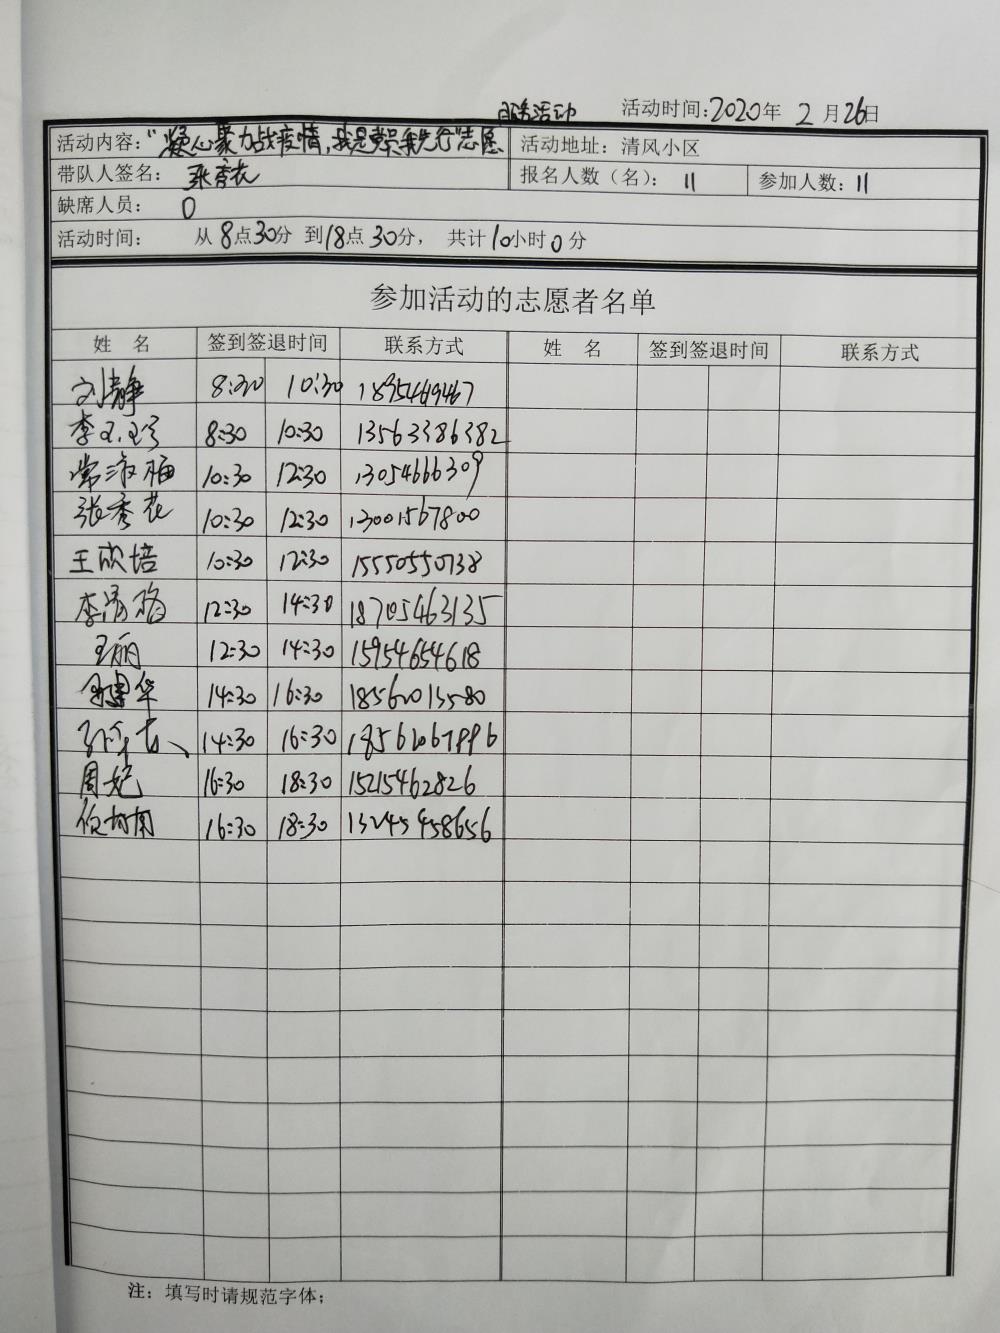 活动时间:2020年 2 月 26日
活动内容:"凝心聚力战疫情,我是党员我先行"志愿服务活动
活动地址: 清风小区
带队人签名: 张秀花
报名人数(名): 11 参加人数: 11
缺席人员: 0
活动时间: 从 8点30分 到18点30分, 共计10小时0分
参加活动的志愿者名单
姓 名 签到签退时间 联系方式 姓 名 签到签退时间 联系方式
刘静 8:30 10:30
李玉珍 8:30 10:30 13563386382
常淑梅 10:30 12:30 13054666309
张秀花 10:30 12:30 13001567800
王欣培 10:30 12:30 15550550738
12:30 14:30 18705463135
王丽 12:30 14:30 15954654618
14:30 16:30 18562013580
14:30 16:30
周妃 16:30 18:30 15215462826
16:30 18:30 13245458656
注: 填写时请规范字体;